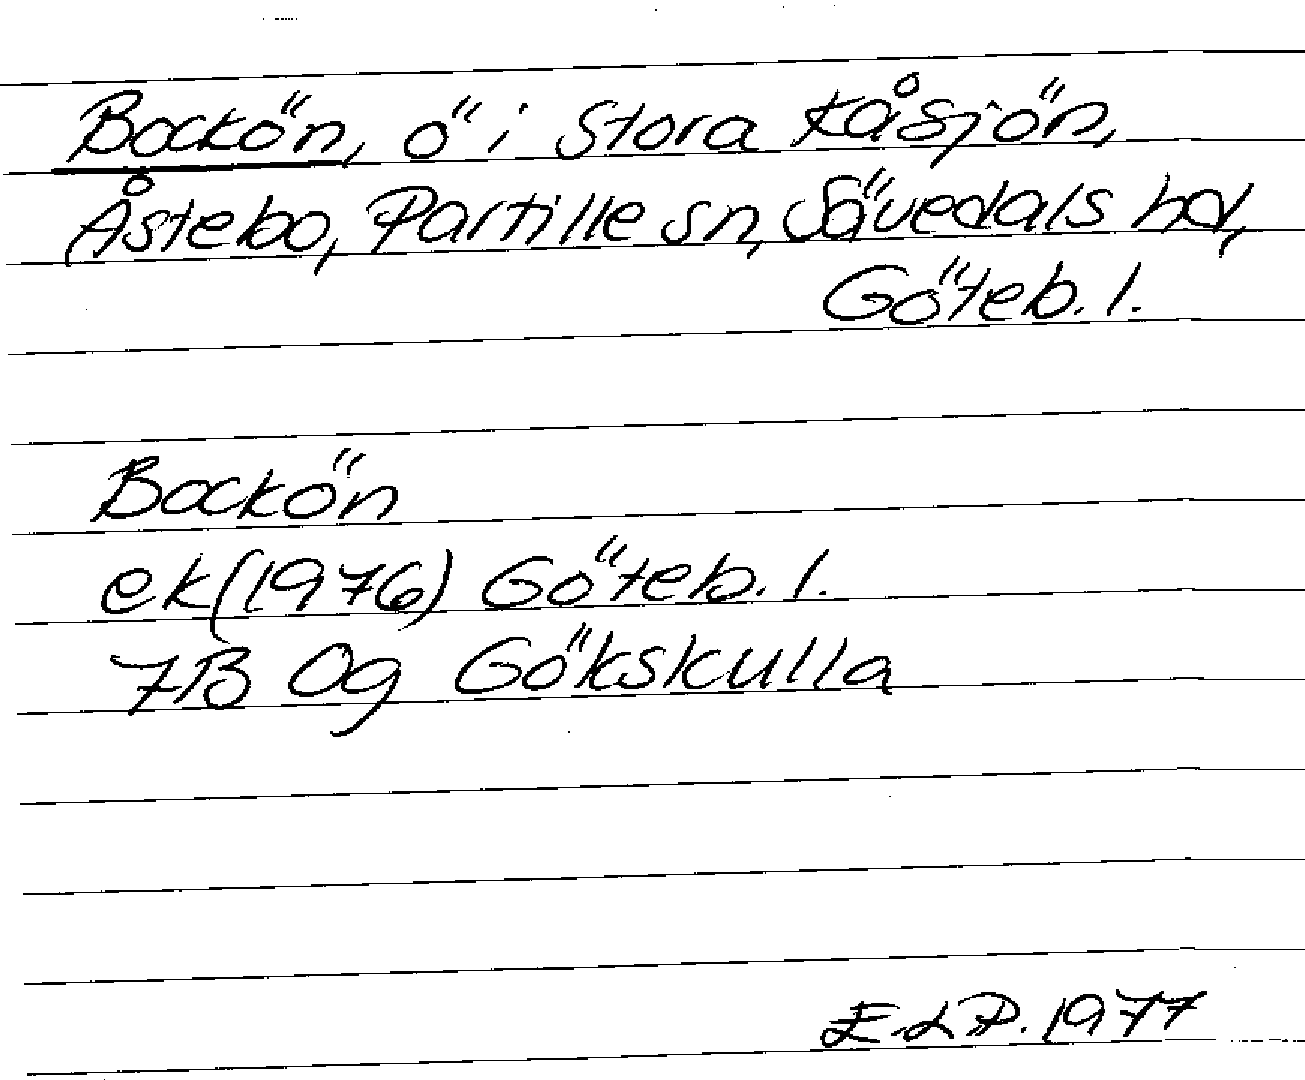 Bockön, ö i Stora Kåsjön,
Åstebo, Partille sn, Sävedals hd,
Göteb. l.
Bockön
ek (1976) Göteb. l.
7B 0g Gökskulla
E.L.P. 1977